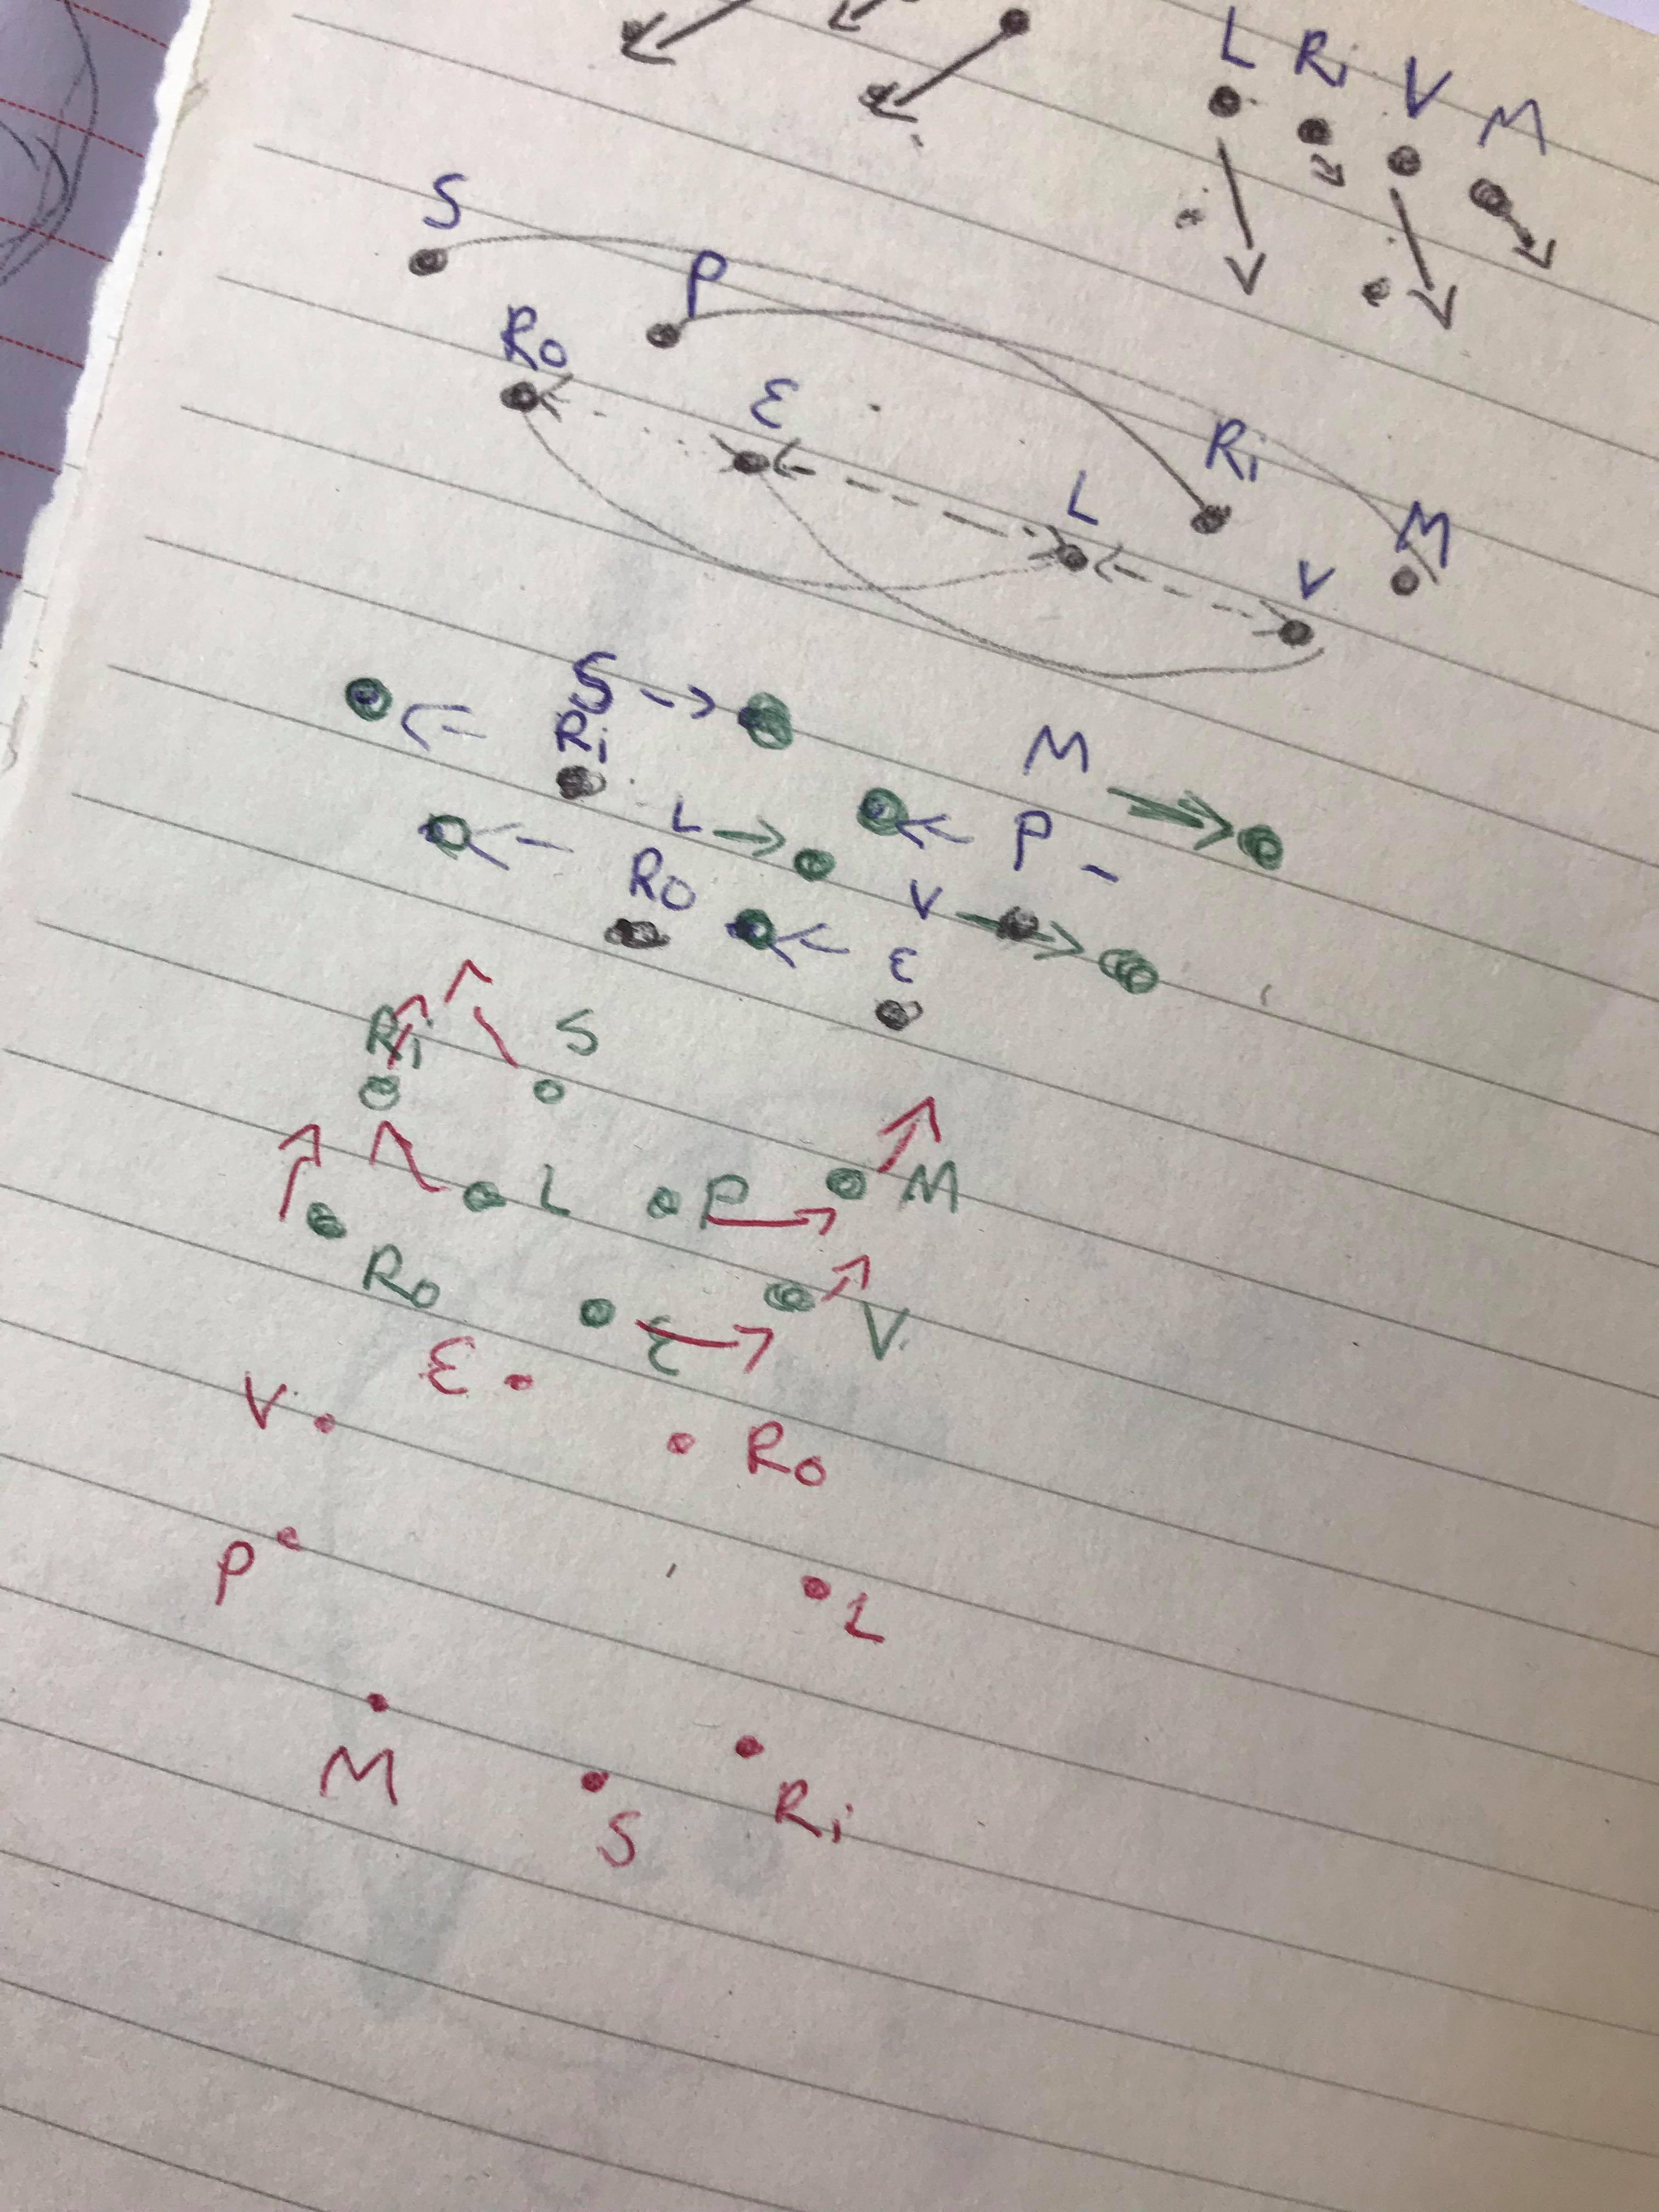 L Ri V M
S P
Ro E Ri
L M
V
S M
Ri P
L V
Ro E
Ri S
L P M
Ro E V
E
V Ro
P L
M Ri
S